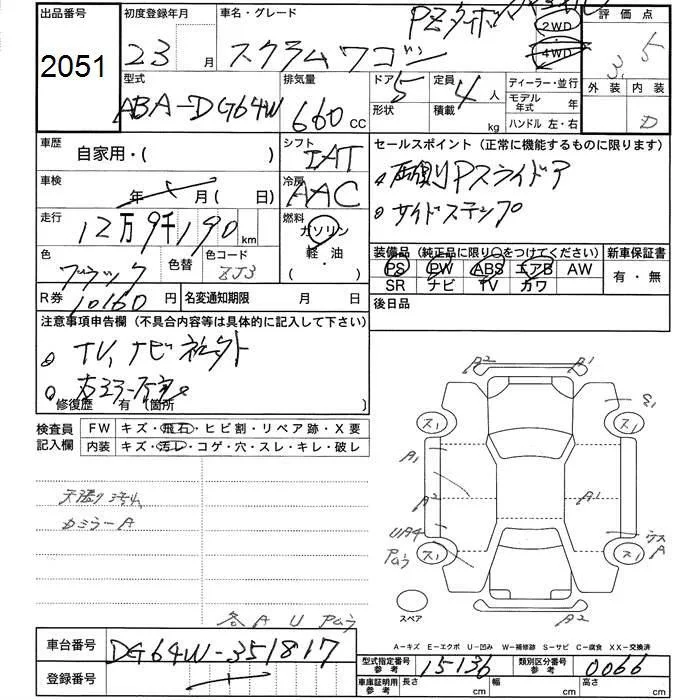 出品番号
2051
初度登録年月
23 月
車名・グレード
PZターボ
スクラムワゴン
2WD
4WD
評価点
3.5
外装 内装
D
型式
ABA-DG64W
排気量
660 cc
ドア 5
形状
定員 4 人
積載 kg
ディーラー・並行
モデル年式 年
ハンドル 左・右
車歴
自家用・( )
シフト
IAT
セールスポイント (正常に機能するものに限ります)
両側Pスライドア
サイドステップ
車検
年 月( 日)
冷房
AAC
走行
12万9千190 km
燃料
ガソリン
軽・油
( ・ )
色
ブラック
色替
色コード
ZJ3
装備品 (純正品に限り○をつけてください)
PS PW ABS エアB AW
SR ナビ TV カワ
新車保証書
有・無
R券 10160 円
名変通知期限 月 日
後日品
注意事項申告欄 (不具合内容等は具体的に記入して下さい)
TV、ナビ
修復歴 有 (箇所 )
検査員記入欄
FW キズ・飛石・ヒビ割・リペア跡・X要
内装 キズ・汚レ・コゲ・穴・スレ・キレ・破レ
カミラーA
各 A U
A2 A1
ス1 ス1
A1
A2 A1
UA4
ス1 ス1
A
スペア
A2
A-キズ E-エクボ U-凹み W-補修跡 S-サビ C-腐食 XX-交換済
車台番号
DG64W-351817
登録番号
型式指定番号
参考
15136
類別区分番号
参考
0066
車庫証明用
参考
長さ cm
幅 cm
高さ cm